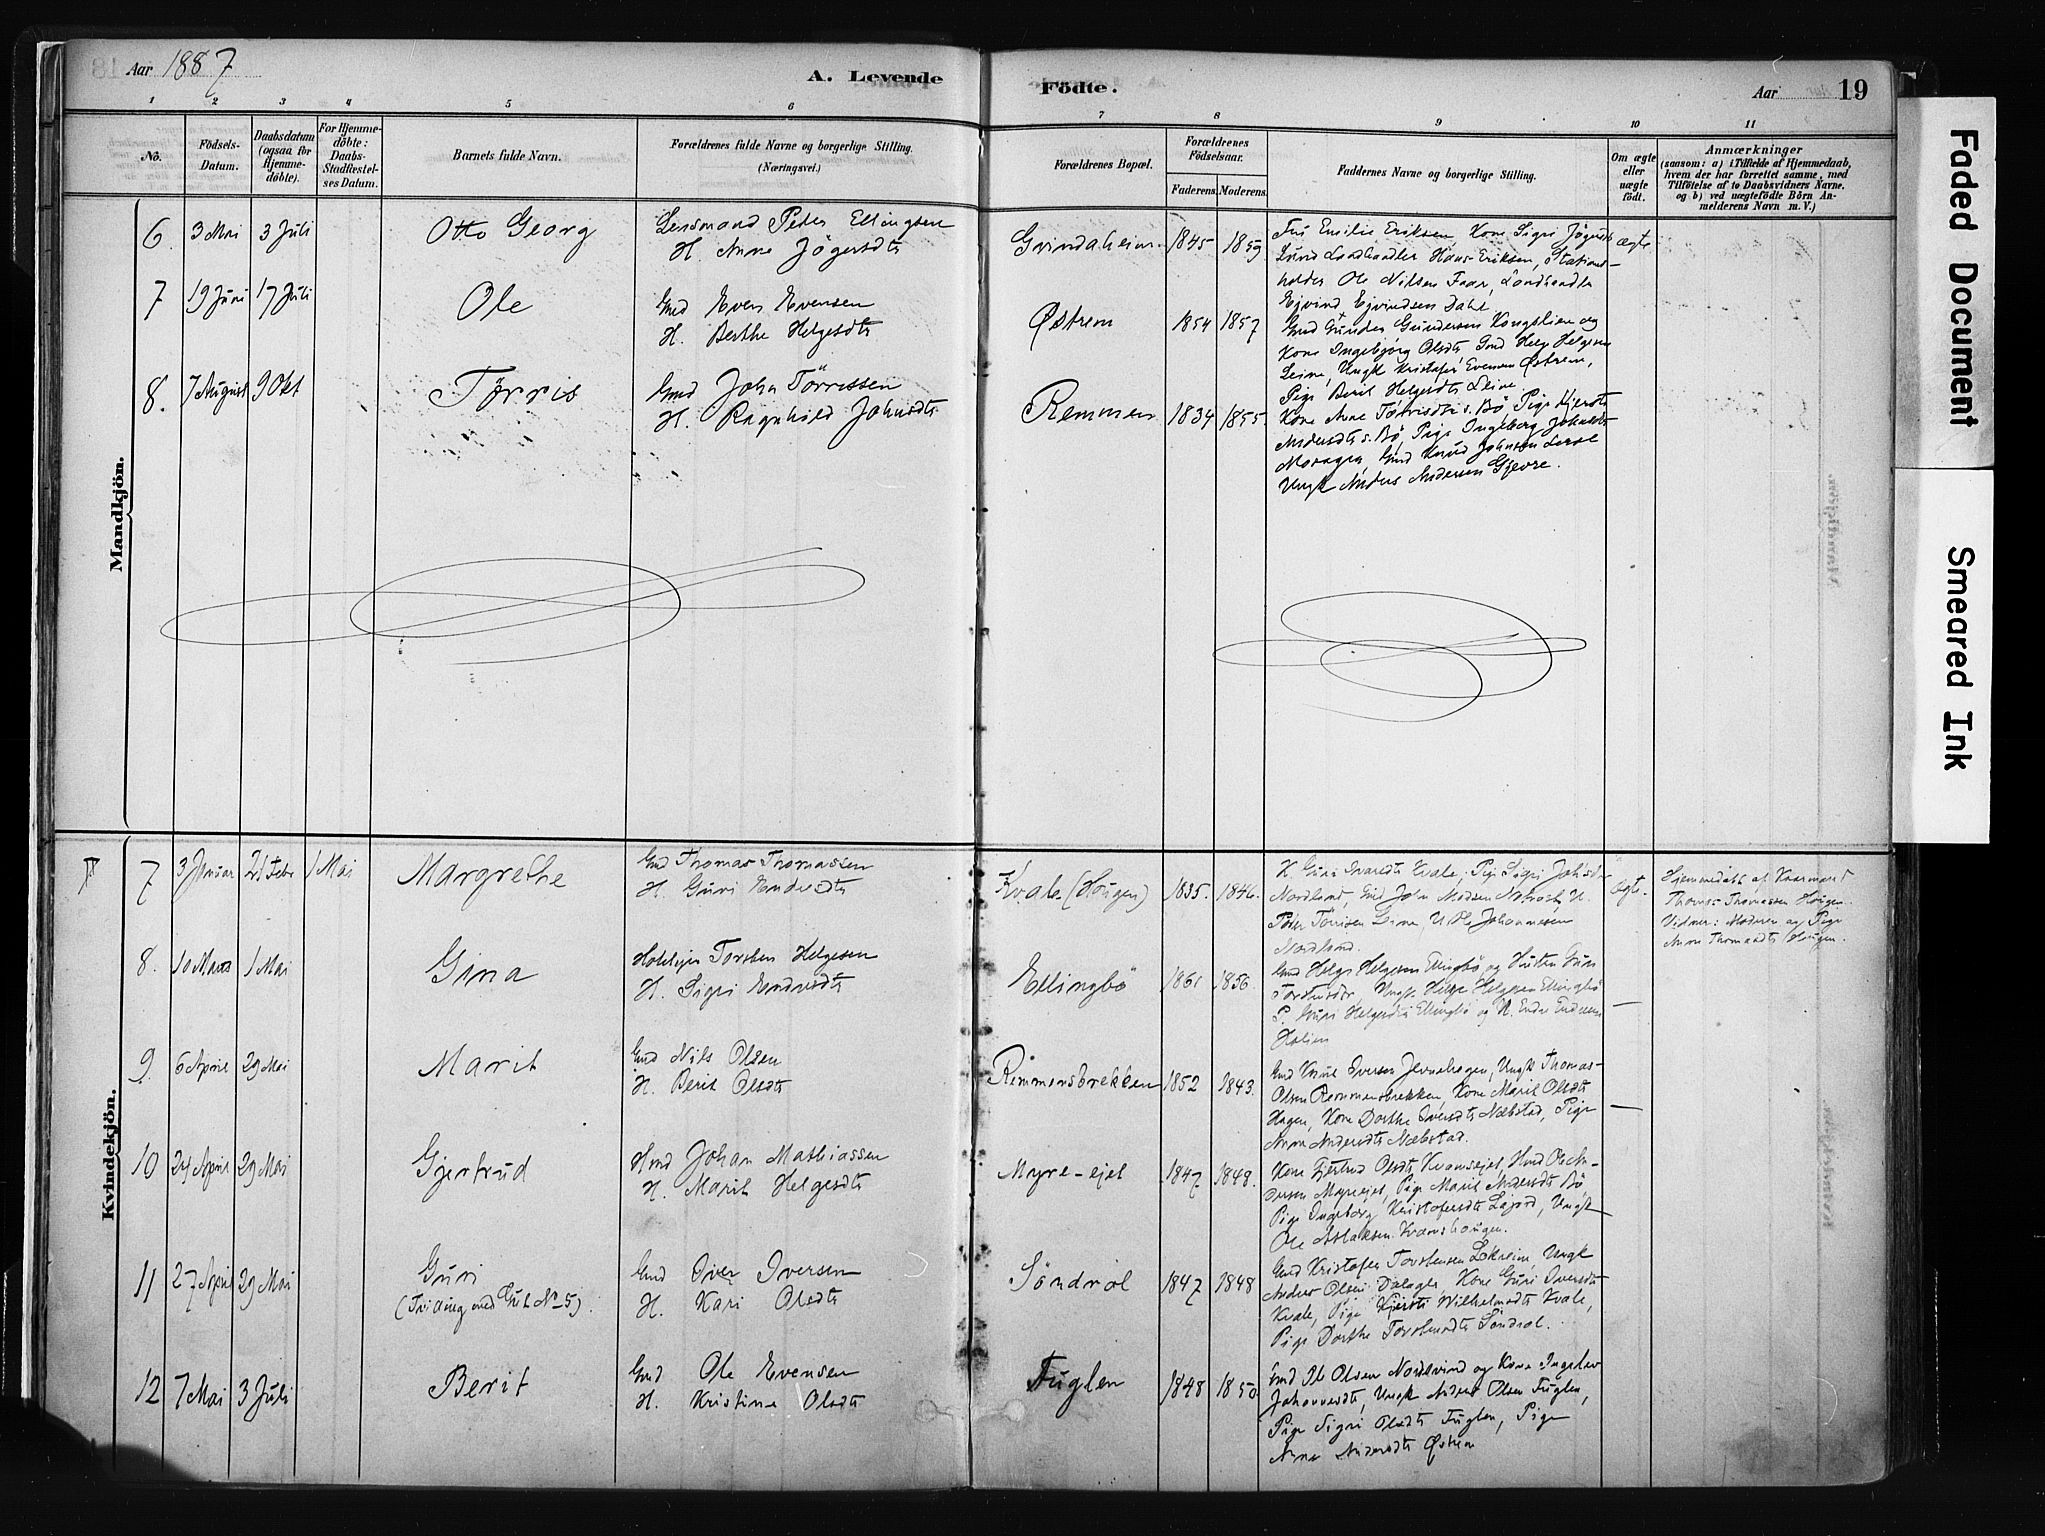 Aar 1887
A. Levende
Födte.
Aar
19
1 2 3 4 5 6 7 8 9 10 11
No.
Födsels-
Datum.
Daabsdatum
(ogsaa for
Hjemme-
döbte).
For Hjemme-
döbte:
Daabs-
Stadfæstel-
ses Datum.
Barnets fulde Navn.
Forældrenes fulde Navne og borgerlige Stilling.
(Næringsvei.)
Forældrenes Bopæl.
Forældrenes
Födselsaar.
Faderens.
Moderens.
Faddernes Navne og borgerlige Stilling.
Om ægte
eller
uægte
født.
Anmærkninger
(saasom: a) i Tilfælde af Hjemmedaab,
hvem der har forrettet samme, med
Tilföielse af to Daabsvidners Navne,
og b) ved uægtefödte Börn An-
melderens Navn m. V.)
Mandkjön.
6. 3 Mai 3 Juli
Otto Georg
Lensmand Peter Ellingsen
H. Anne Jögersdtr
Grindaheim 1845 1859
Fru Emilie Eriksen Kone Sigri Jögersdtr
Lund Landhandler Hans Eriksen, Stations-
holder Ole Nilsen Faar, Landhandler
Ejvind Ejvindsen Dahl
ægte
7 19 Juni 17 Juli
Ole
Gmd Even Evensen
H. Berthe Helgesdtr
Østrem 1854 1857
Gmd Gunder Gundersen Kongslien og
Kone Ingebjörg Olsdtr Gmd Helge Helgesen
Leine, Ungk Kristofer Evensen Østrem,
Pige Berit Helgesdtr Leine.
8. 7 August 9 Okt
Törris
Gmd John Törrissen
H. Ragnhild Johnsdtr
Remmen 1834 1855.
Kone Anne Törrisdtr s. Bö, Pige Kjersti
Andersdtr s. Bö, Pige Ingeborg Johnsdtr
Gmd Knud Johnsen
Ungk Anders Andersen Gjevre.
Kvindekjön.
7 3 Januar 21 Febr 1 Mai
Margrethe
Gmd Thomas Thomassen
H. Guri Endresdtr
Kvale (Hougen) 1835. 1846.
K. Guri Ivarsdtr Kvale, Pige Sigri Johnsdtr
Nordland, Gmd John Madsen U.
Peder Törrisen Leine, U. Ole Johannessen
Nordland.
ægte.
Hjemmedöbt af Kaarmand
Thomas Thomassen Hougen.
Vidner: Moderen og Pige
Anne Thomasdtr Hougen.
8. 10 Marts 1 Mai
Gina
Torsten Helgesen
H. Sigri Endresdtr
Ellingbö 1861 1856
Gmd Helge Helgesen Ellingbö og Hustru Guri
Torstensdtr, Ungk Helge Helgesen Ellingbö
P. Guri Helgesdtr Ellingbö og U. Endre Endresen
—
9. 6 April 29 Mai
Marit
Gmd Nils Olsen
H. Berit Olsdtr
Remmensbrekken 1852 1843.
Gmd Knut Iversen Jernshagen, Ungk Thomas
Olsen Remmensbrekken, Kone Marit Olsdtr
Hagen, Kone Dorthe Iversdtr Næbstad, Pige
Anne Andersdtr Næbstad.
—
10 24 April 29 Mai
Gjertrud
Hmd Johan Mathiassen
H. Marit Helgesdtr
Myre-ejet 1847 1848.
Kone Gjertrud Olsdtr Kvamsejet, Hmd Ole An-
dersen Myreejet, Pige Marit Andersdtr Bö
Pige Ingeborg Kristofersdtr Lajord, Ungk
Ole Aslaksen Kvamshougen.
—
11 27 April 29 Mai
Guri
(Tvilling med Gut No 5).
Gmd Iver Iversen
H. Kari Olsdtr
Söndrol 1847 1848
Gmd Kristofer Torstensen Lökreim, Ungk
Anders Olsen Dalager Kone Guri Iversdtr
Kvale, Pige Kjersti Wilhelmsdtr Kvale,
Pige Dorthe Torstensdtr Söndrol.
12 7 Mai 3 Juli
Berit
Gmd Ole Evensen
H. Kristine Olsdtr
Fuglen 1848 1850
Gmd Ole Olsen Nordsvind og Kone Ingeleiv
Johannesdtr, Ungk Andres Olsen Fuglen,
Pige Sigri Olsdtr Fuglen, Pige
Anne Andersdtr Østrem
Faded Document
Smeared Ink